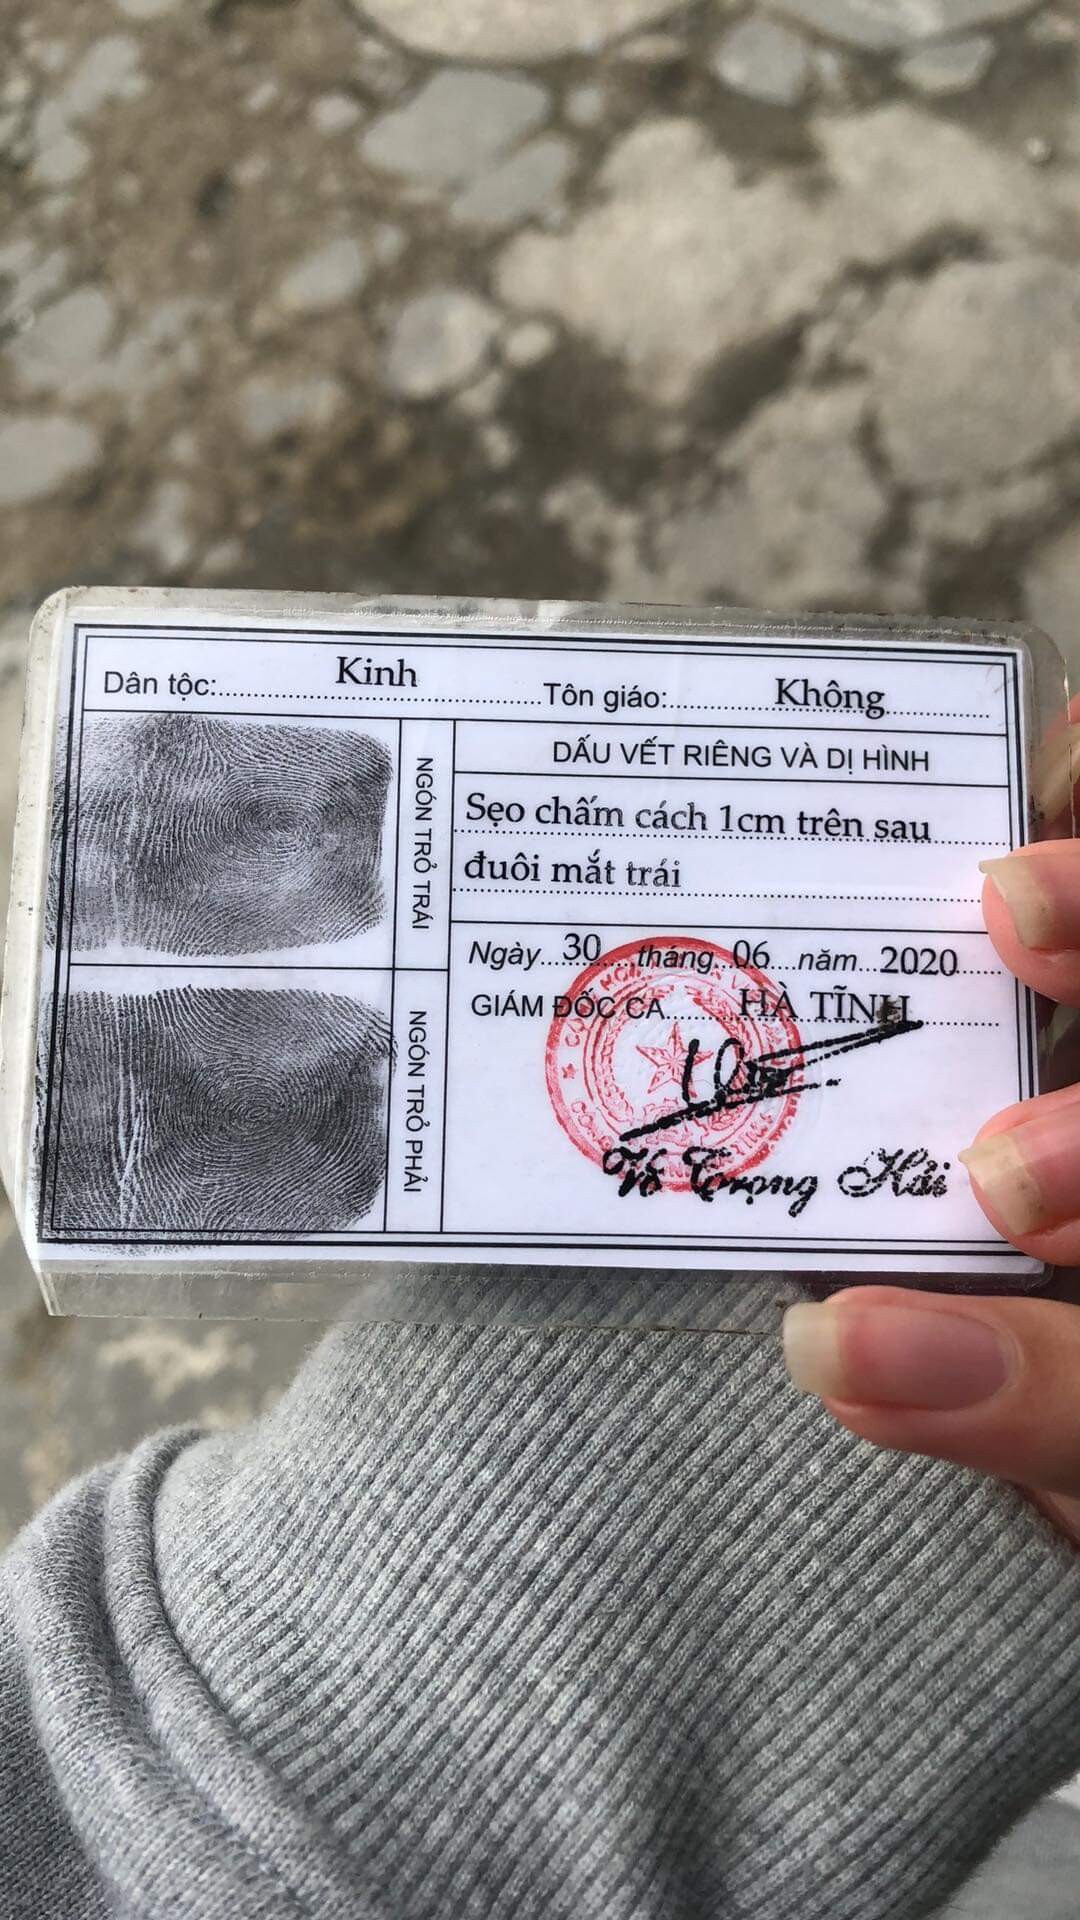 Dân tộc: Kinh Tôn giáo: Không
NGÓN TRỎ TRÁI
NGÓN TRỎ PHẢI
DẤU VẾT RIÊNG VÀ DỊ HÌNH
Sẹo chấm cách 1cm trên sau
đuôi mắt trái
Ngày 30 tháng 06 năm 2020
GIÁM ĐỐC CA HÀ TĨNH
Võ Trọng Hải